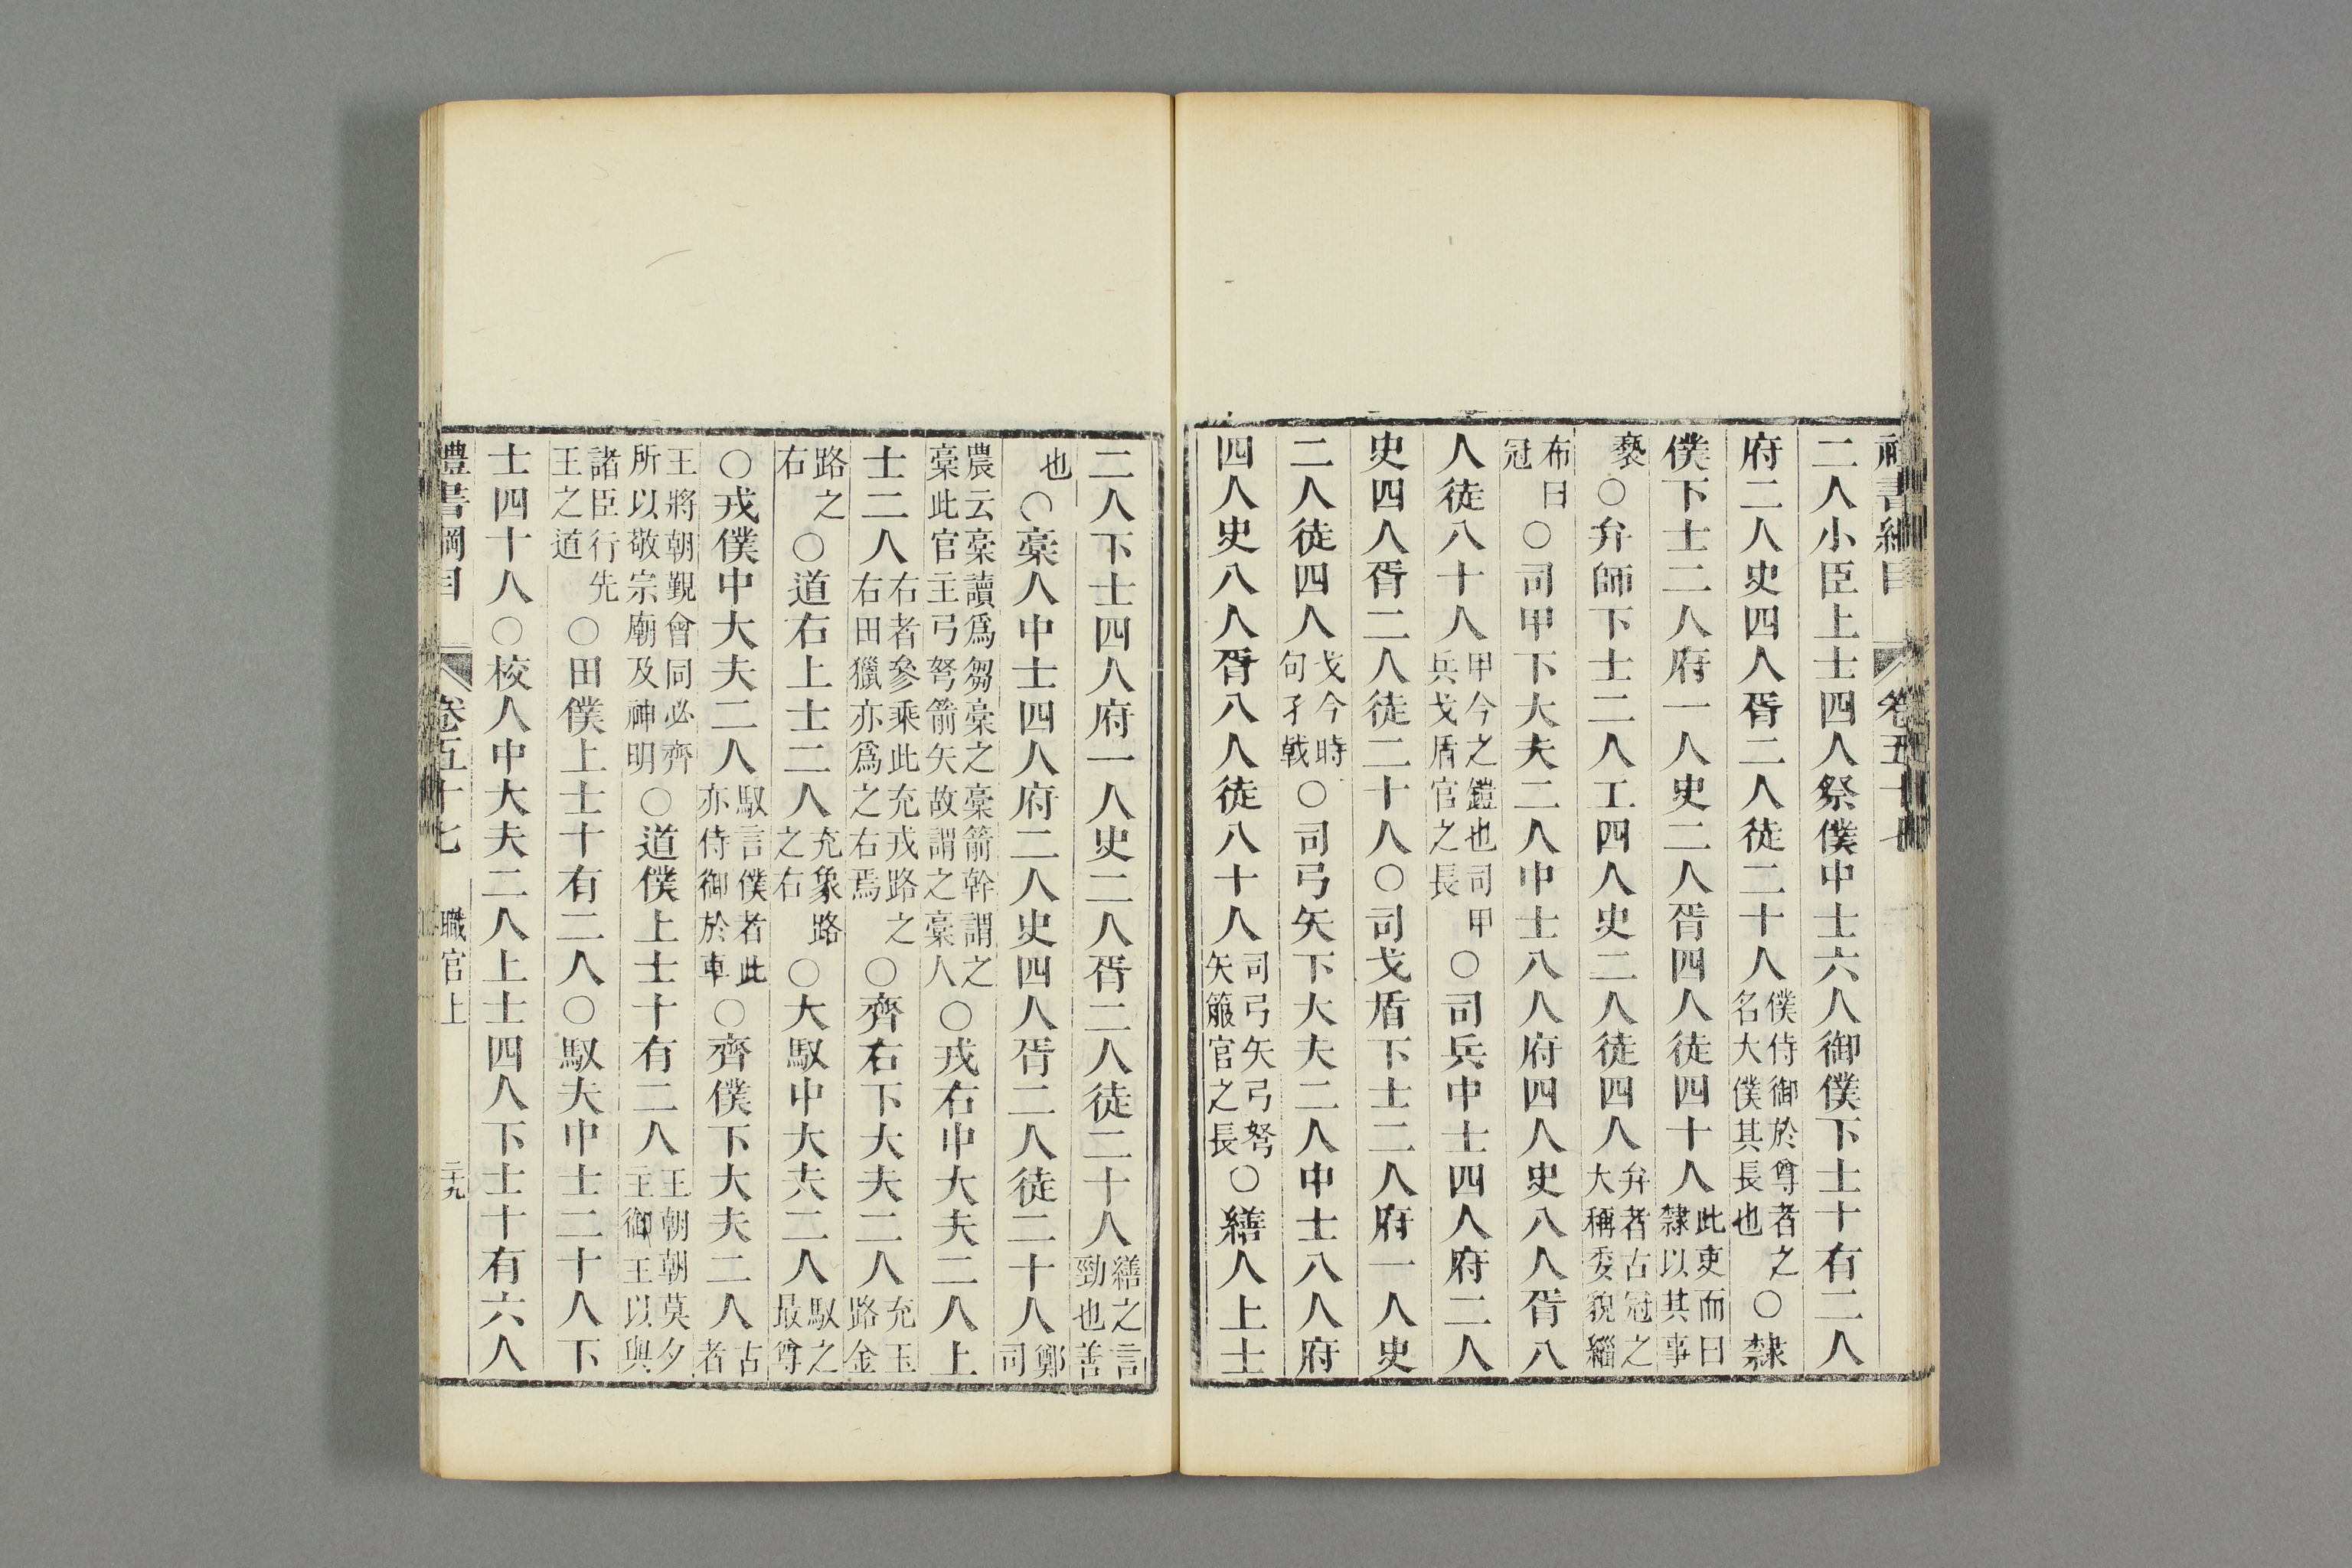 禮書綱目 卷五十七
二人小臣上士四人祭僕中士六人御僕下士十有二人
府二人史四人胥二人徒二十人僕侍御於尊者之名大僕其長也○隸
僕下士二人府一人史二人胥四人徒四十人此吏而曰隸以其事
褻○弁師下士二人工四人史二人徒四人弁者古冠之大稱委貌緇
布曰冠○司甲下大夫二人中士八人府四人史八人胥八
人徒八十人甲今之鎧也司甲兵戈盾官之長○司兵中士四人府二人
史四人胥二人徒二十人○司戈盾下士二人府一人史
二人徒四人戈今時句孑戟○司弓矢下大夫二人中士八人府
四人史八人胥八人徒八十人司弓矢弓弩矢箙官之長○繕人上士
二人下士四人府一人史二人胥二人徒二十人繕之言勁也善
也○槀人中士四人府二人史四人胥二人徒二十人鄭司
農云槀讀爲芻槀之槀箭幹謂之槀此官主弓弩箭矢故謂之槀人○戎右中大夫二人上
士二人右者參乘此充戎路之右田獵亦爲之右焉○齊右下大夫二人充玉路金
路之右○道右上士二人充象路之右○大馭中大夫二人馭之最尊
○戎僕中大夫二人馭言僕者此亦侍御於車○齊僕下大夫二人古者
王將朝覲會同必齊所以敬宗廟及神明○道僕上士十有二人王朝朝莫夕主御王以與
諸臣行先王之道○田僕上士十有二人○馭夫中士二十人下
士四十人○校人中大夫二人上士四人下士十有六人
禮書綱目 卷五十七 職官上 二十九